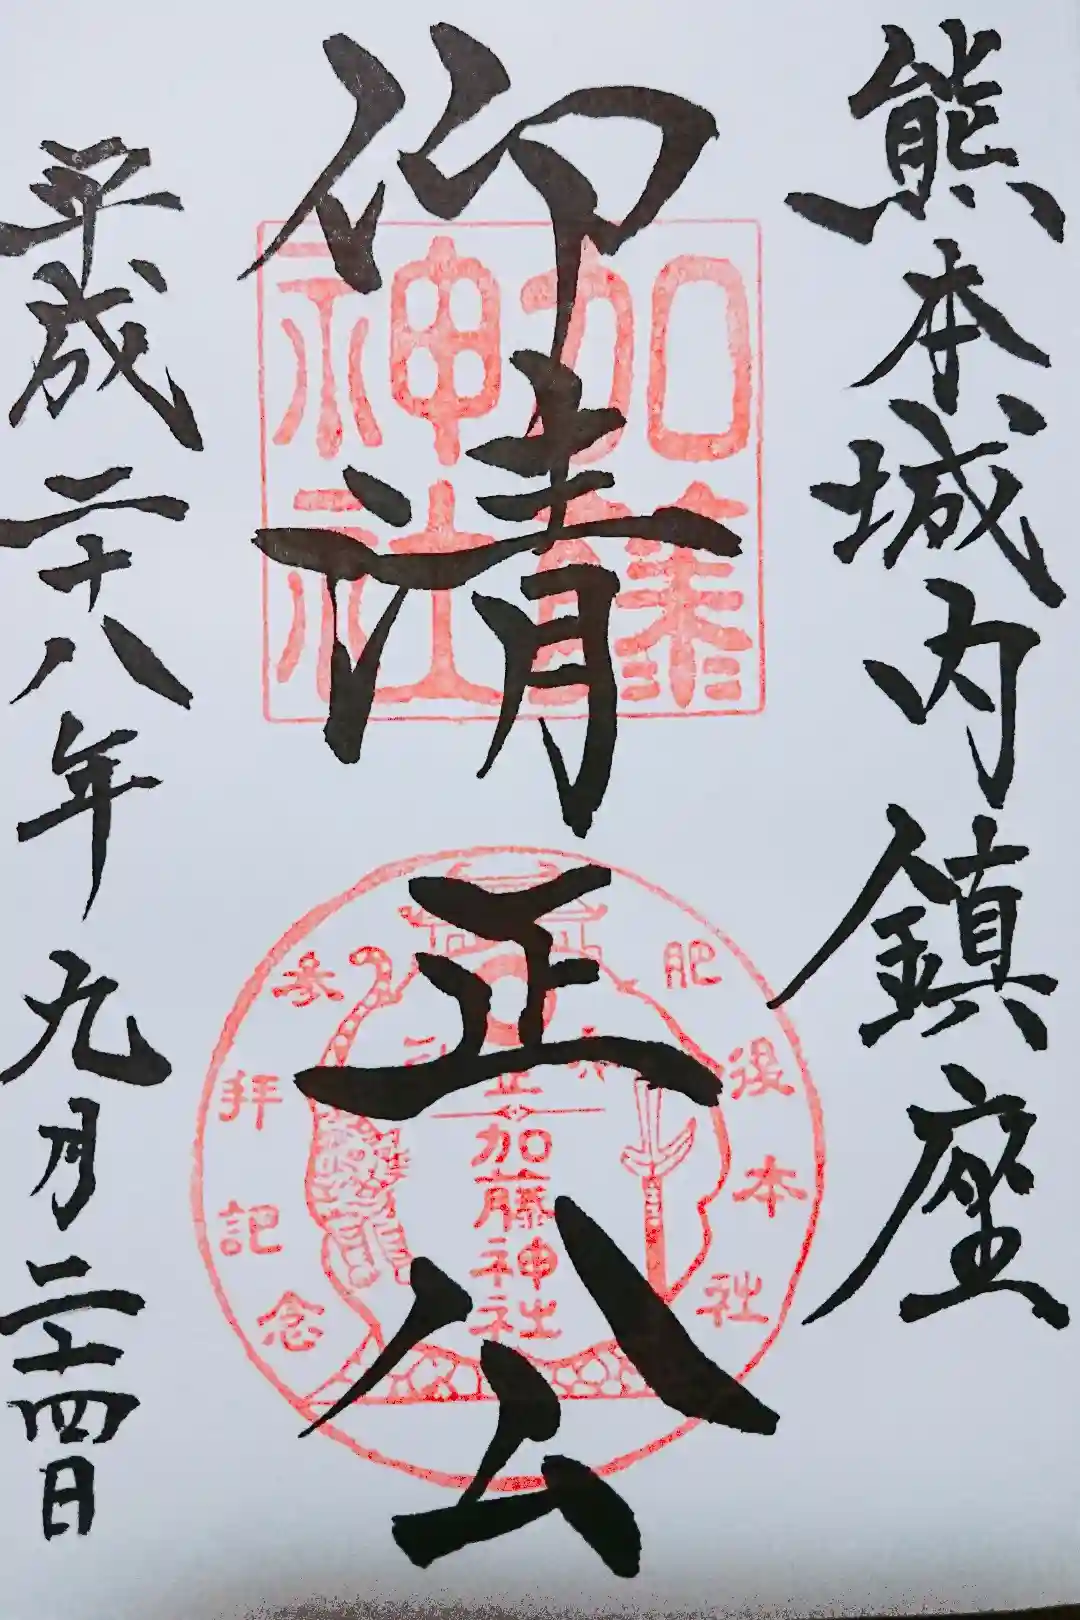 熊本城内鎮座
仰清正公
平成二十八年九月二十四日
加藤
神社
肥後本社
参拝記念
加藤神社